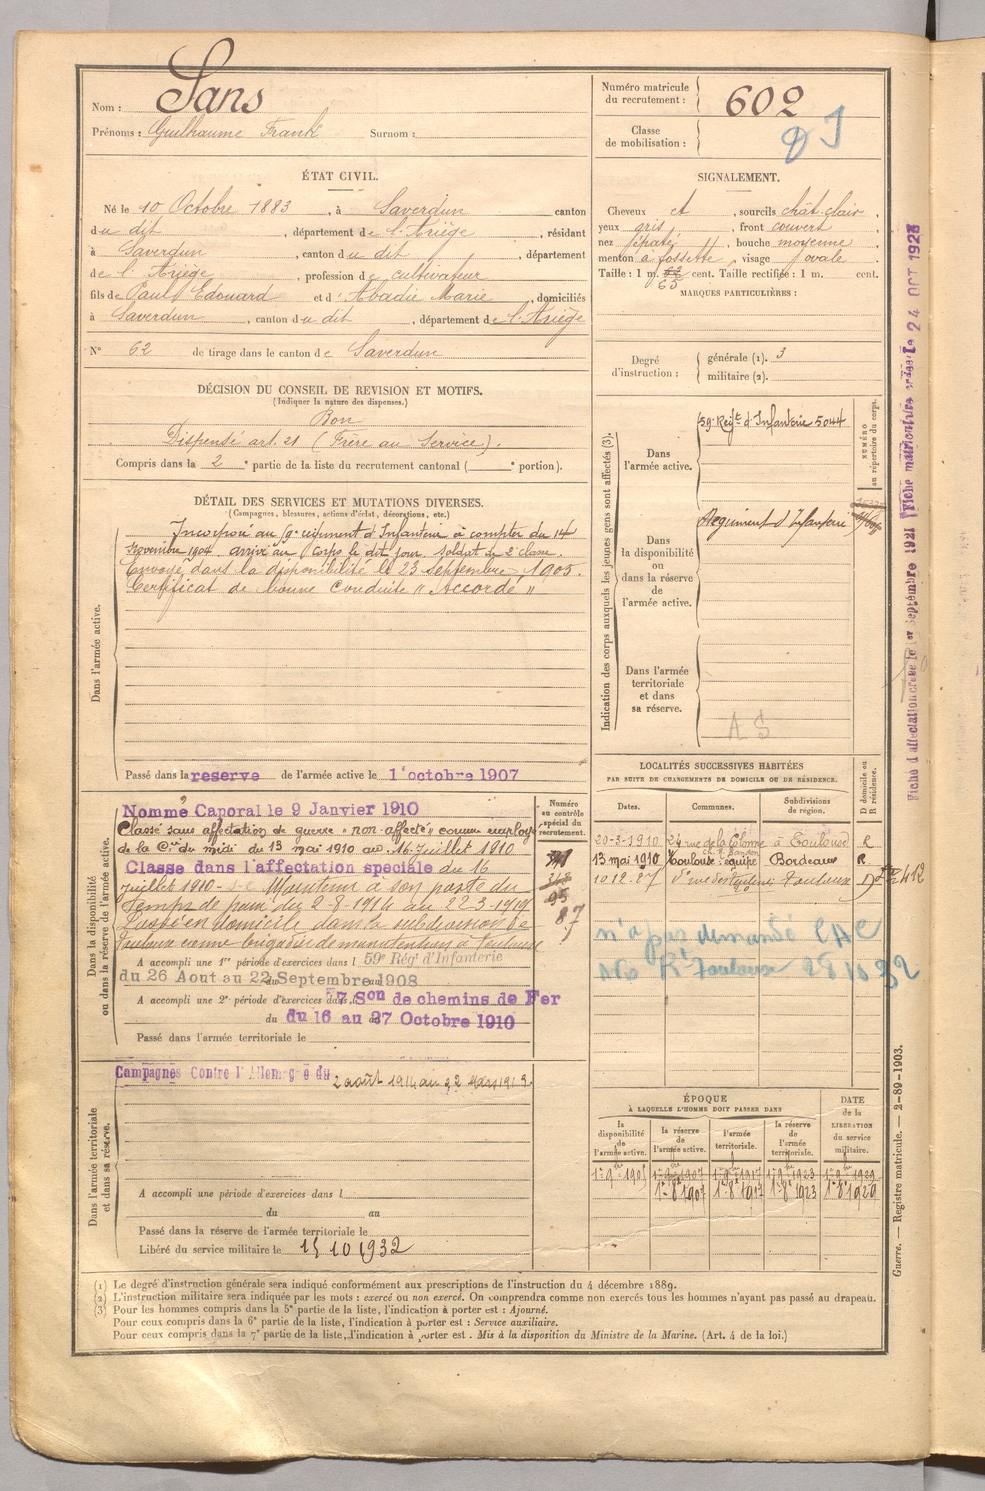 Nom : Sans
Prénoms : Guilhaume Frank Surnom :
ÉTAT CIVIL.
Né le 10 Octobre 1883, à Saverdun canton
du dit, département de l'Ariège, résidant
à Saverdun, canton du dit, département
de l'Ariège, profession de cultivateur
fils de Paul Edouard et d' Abadie Marie, domiciliés
à Saverdun, canton du dit, département de l'Ariège
N° 62 de tirage dans le canton de Saverdun
DÉCISION DU CONSEIL DE REVISION ET MOTIFS.
(Indiquer la nature des dispenses.)
Bon
Dispensé art. 21 (Frère au Service).
Compris dans la 2e partie de la liste du recrutement cantonal ( e portion).
DÉTAIL DES SERVICES ET MUTATIONS DIVERSES.
(Campagnes, blessures, actions d'éclat, décorations, etc.)
Dans l'armée active.
Incorporé au 59e régiment d'Infanterie à compter du 14
Novembre 1904. arrivé au Corps le dit jour. soldat de 2e classe.
Envoyé dans la disponibilité le 23 Septembre 1905.
Certificat de bonne Conduite "Accordé"
Passé dans la reserve de l'armée active le 1 octobre 1907
Dans la disponibilité
ou dans la réserve de l'armée active.
Nommé Caporal le 9 Janvier 1910
Classé sans affectation de guerre "non affecté" comme employé
de la Cie du midi du 13 mai 1910 au 16 Juillet 1910
Classe dans l'affectation speciale du 16
Juillet 1910 - Maintenu à son poste du
temps de paix du 2-8-1914 au 22-3-1919
en domicile dans la subdivision de
Toulouse comme brigadier de manutention à Toulouse
A accompli une 1re période d'exercices dans l 59e Rég' d'Infanterie
du 26 Aout au 22 Septembre 1908
A accompli une 2e période d'exercices dans l 7 Son de chemins de Fer
du 16 au 27 Octobre 1910
Passé dans l'armée territoriale le
Numéro
au contrôle
spécial du
recrutement.
95
87
Dans l'armée territoriale
et dans sa réserve.
Campagnes Contre l'Allemagne du 2 août 1914 au 22 Mars 1919
A accompli une période d'exercices dans l
du au
Passé dans la réserve de l'armée territoriale le
Libéré du service militaire le 15 10 1932
Numéro matricule
du recrutement : 602
Classe
de mobilisation :
SIGNALEMENT.
Cheveux et, sourcils chât. clair,
yeux gris, front couvert
nez épaté, bouche moyenne
menton à fossette, visage ovale
Taille : 1 m. 63 cent. Taille rectifiée : 1 m. cent.
MARQUES PARTICULIÈRES :
Degré
d'instruction :
générale (1). 3
militaire (2).
Indication des corps auxquels les jeunes gens sont affectés (3).
NUMÉRO
au répertoire du corps.
Dans
l'armée active.
59e Regt d'Infanterie 5044
Dans
la disponibilité
ou
dans la réserve
de
l'armée active.
Regiment d'Infanterie
Dans l'armée
territoriale
et dans
sa réserve.
A S
LOCALITÉS SUCCESSIVES HABITÉES
PAR SUITE DE CHANGEMENTS DE DOMICILE OU DE RÉSIDENCE.
D domicile ou
R résidence.
Dates. Communes. Subdivisions
de région.
20-3-1910 24 rue de la Colonne à Toulouse R
13 mai 1910 Toulouse équipe Bordeaux R
10.12.27 Toulouse D
n'a pas demandé CAC
28 10 32
ÉPOQUE
À LAQUELLE L'HOMME DOIT PASSER DANS
DATE
de la
LIBÉRATION
du service
militaire.
la
disponibilité
de
l'armée active.
la réserve
de
l'armée active.
l'armée
territoriale.
la réserve
de
l'armée
territoriale.
1er 9bre 1905 1er 9bre 1907 1er 9bre 1917 1er 9bre 1923 1er 9bre 1929
1er 8bre 1907 1er 8bre 1917 1er 8bre 1923 1er 8bre 1929
Fiche d'affectation créée le 1er Septembre 1921 Fiche matriculaire créée le 24 OCT 1928
Guerre. — Registre matricule. — 2-89-1903.
(1) Le degré d'instruction générale sera indiqué conformément aux prescriptions de l'instruction du 4 décembre 1889.
(2) L'instruction militaire sera indiquée par les mots : exercé ou non exercé. On comprendra comme non exercés tous les hommes n'ayant pas passé au drapeau.
(3) Pour les hommes compris dans la 5e partie de la liste, l'indication à porter est : Ajourné.
Pour ceux compris dans la 6e partie de la liste, l'indication à porter est : Service auxiliaire.
Pour ceux compris dans la 7e partie de la liste, l'indication à porter est : Mis à la disposition du Ministre de la Marine. (Art. 4 de la loi.)